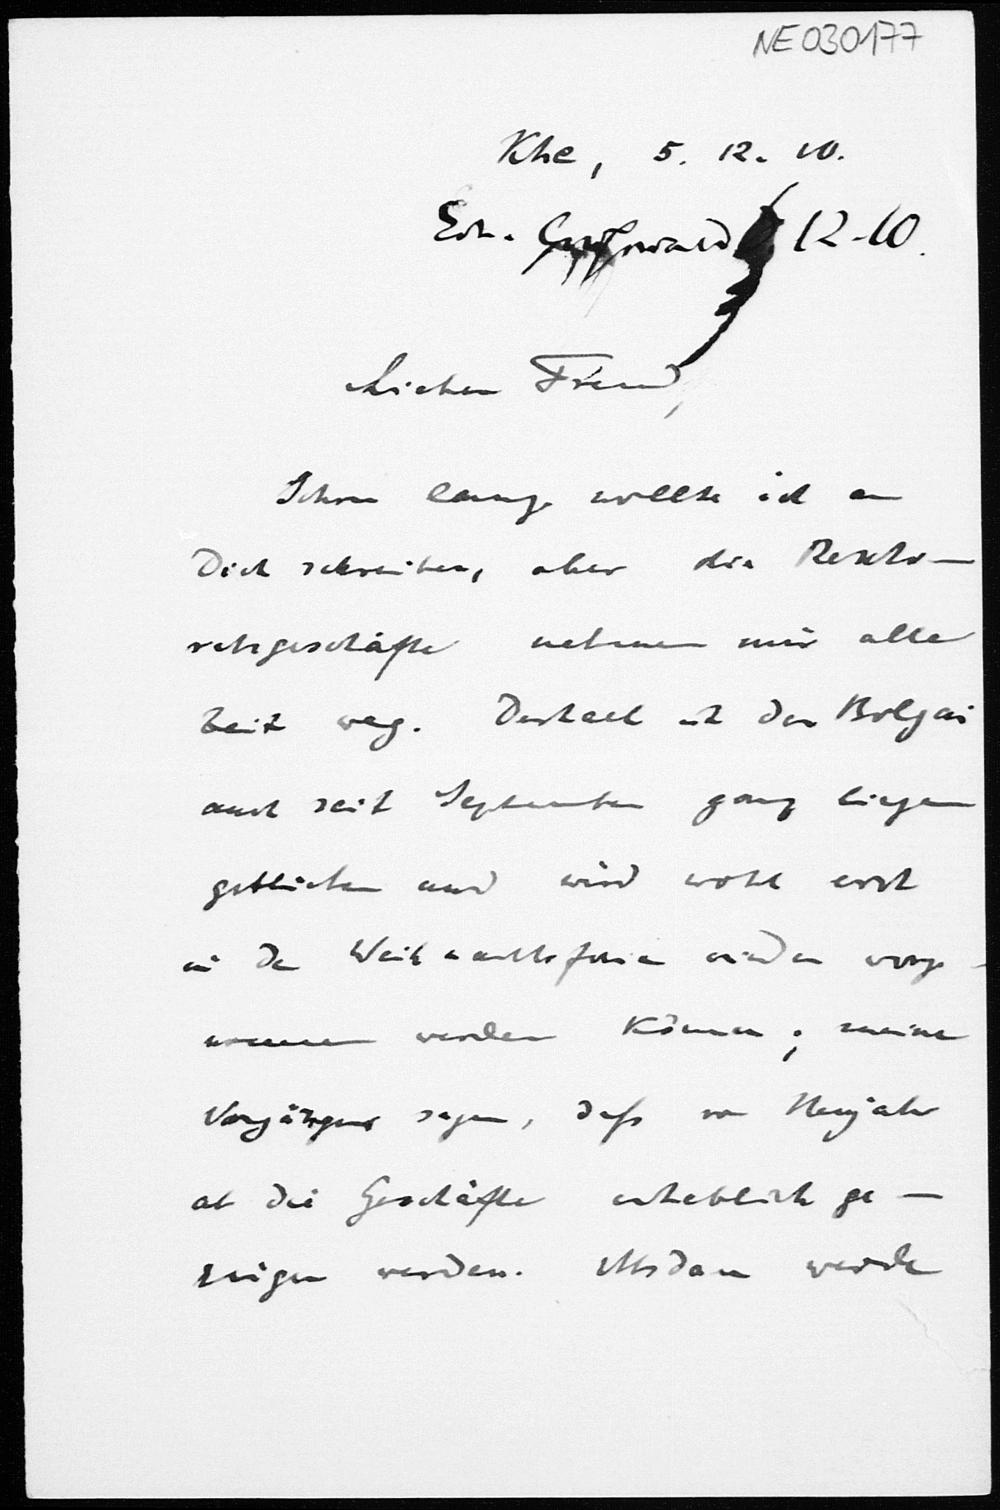 NE030177
Khe, 5. 12. 10.
Erh. Greifswald 12-10.
Lieber Freund,
Schon lange wollte ich an
Dich schreiben, aber die Rekto-
ratsgeschäfte nehmen mir alle
Zeit weg. Deshalb ist der Bolyai
auch seit September ganz liegen
geblieben und wird wohl erst
in den Weihnachtsferien wieder vorge-
nommen werden können; meine
Vorgänger sagen, daß von Neujahr
ab die Geschäfte erheblich ge-
ringer werden. Alsdann werde